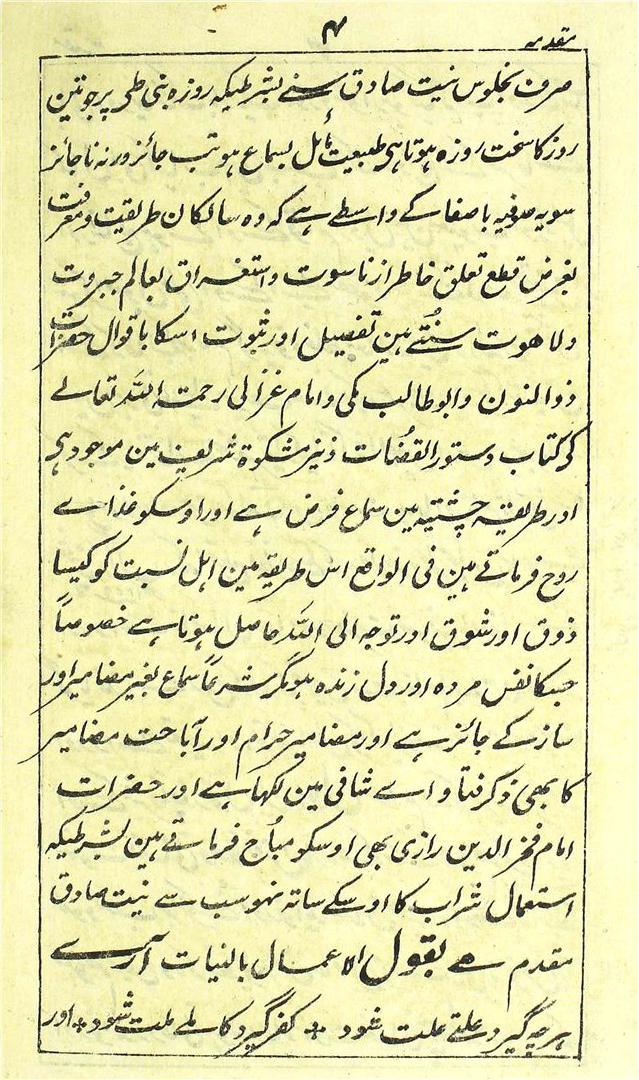 مقدمہ ۴
صرف بخلوص نیت صادق سنے بشرطیکہ روزہ بنی طی پر جو تین
روز کا سخت روزہ ہوتا ہی طبیعت مائل بسماع ہو تب جائز ورنہ ناجائز
سویہ صوفیہ باصفا کے واسطے ہے کہ وہ سالکان طریقیت ومعرفت
بغرض قطع تعلق خاطر از ناسوت واستغراق بعالم جبروت
ولاھوت سُنتے ہین تفصیل اور ثبوت اسکا باقوال حضرات
ذوالنون وابوطالب مکی وامام غزالی رحمتہ اللہ تعالے
کی کتاب دستور القضُات ونیز مشکوۃ شریف مین موجود ہی
اور طریقیہ چشتیہ مین سماع فرض ہے اور اوسکو غذاے
روح فرماتے ہین فی الواقع اس طریقہ مین اہل نسبت کو کیسا
ذوق اور شوق اور توجہ الی اللہ حاصل ہوتا ہے خصوصاً
جسکا نفس مردہ اور دل زندہ ہو مگر شرعاً سماع بغیر مضامیر اور
ساز کے جائز ہے اور مضامیر حرام اور آباحت مضامیر
کا بھی ذکر فتاواے شافی مین لکھا ہے اور حضرات
امام فخر الدین رازی بھی اوسکو مباُح فرماتے ہین بشرطیکہ
استعمال شراب کا اوسکے ساتہ نہو سب سے نیت صادق
مقدم ہے بقول الاعمال بالنیات آرے
ہرچہ گیرد علتے علت شود ٭ کفر گیرد کاملے ملت شود ٭ اور